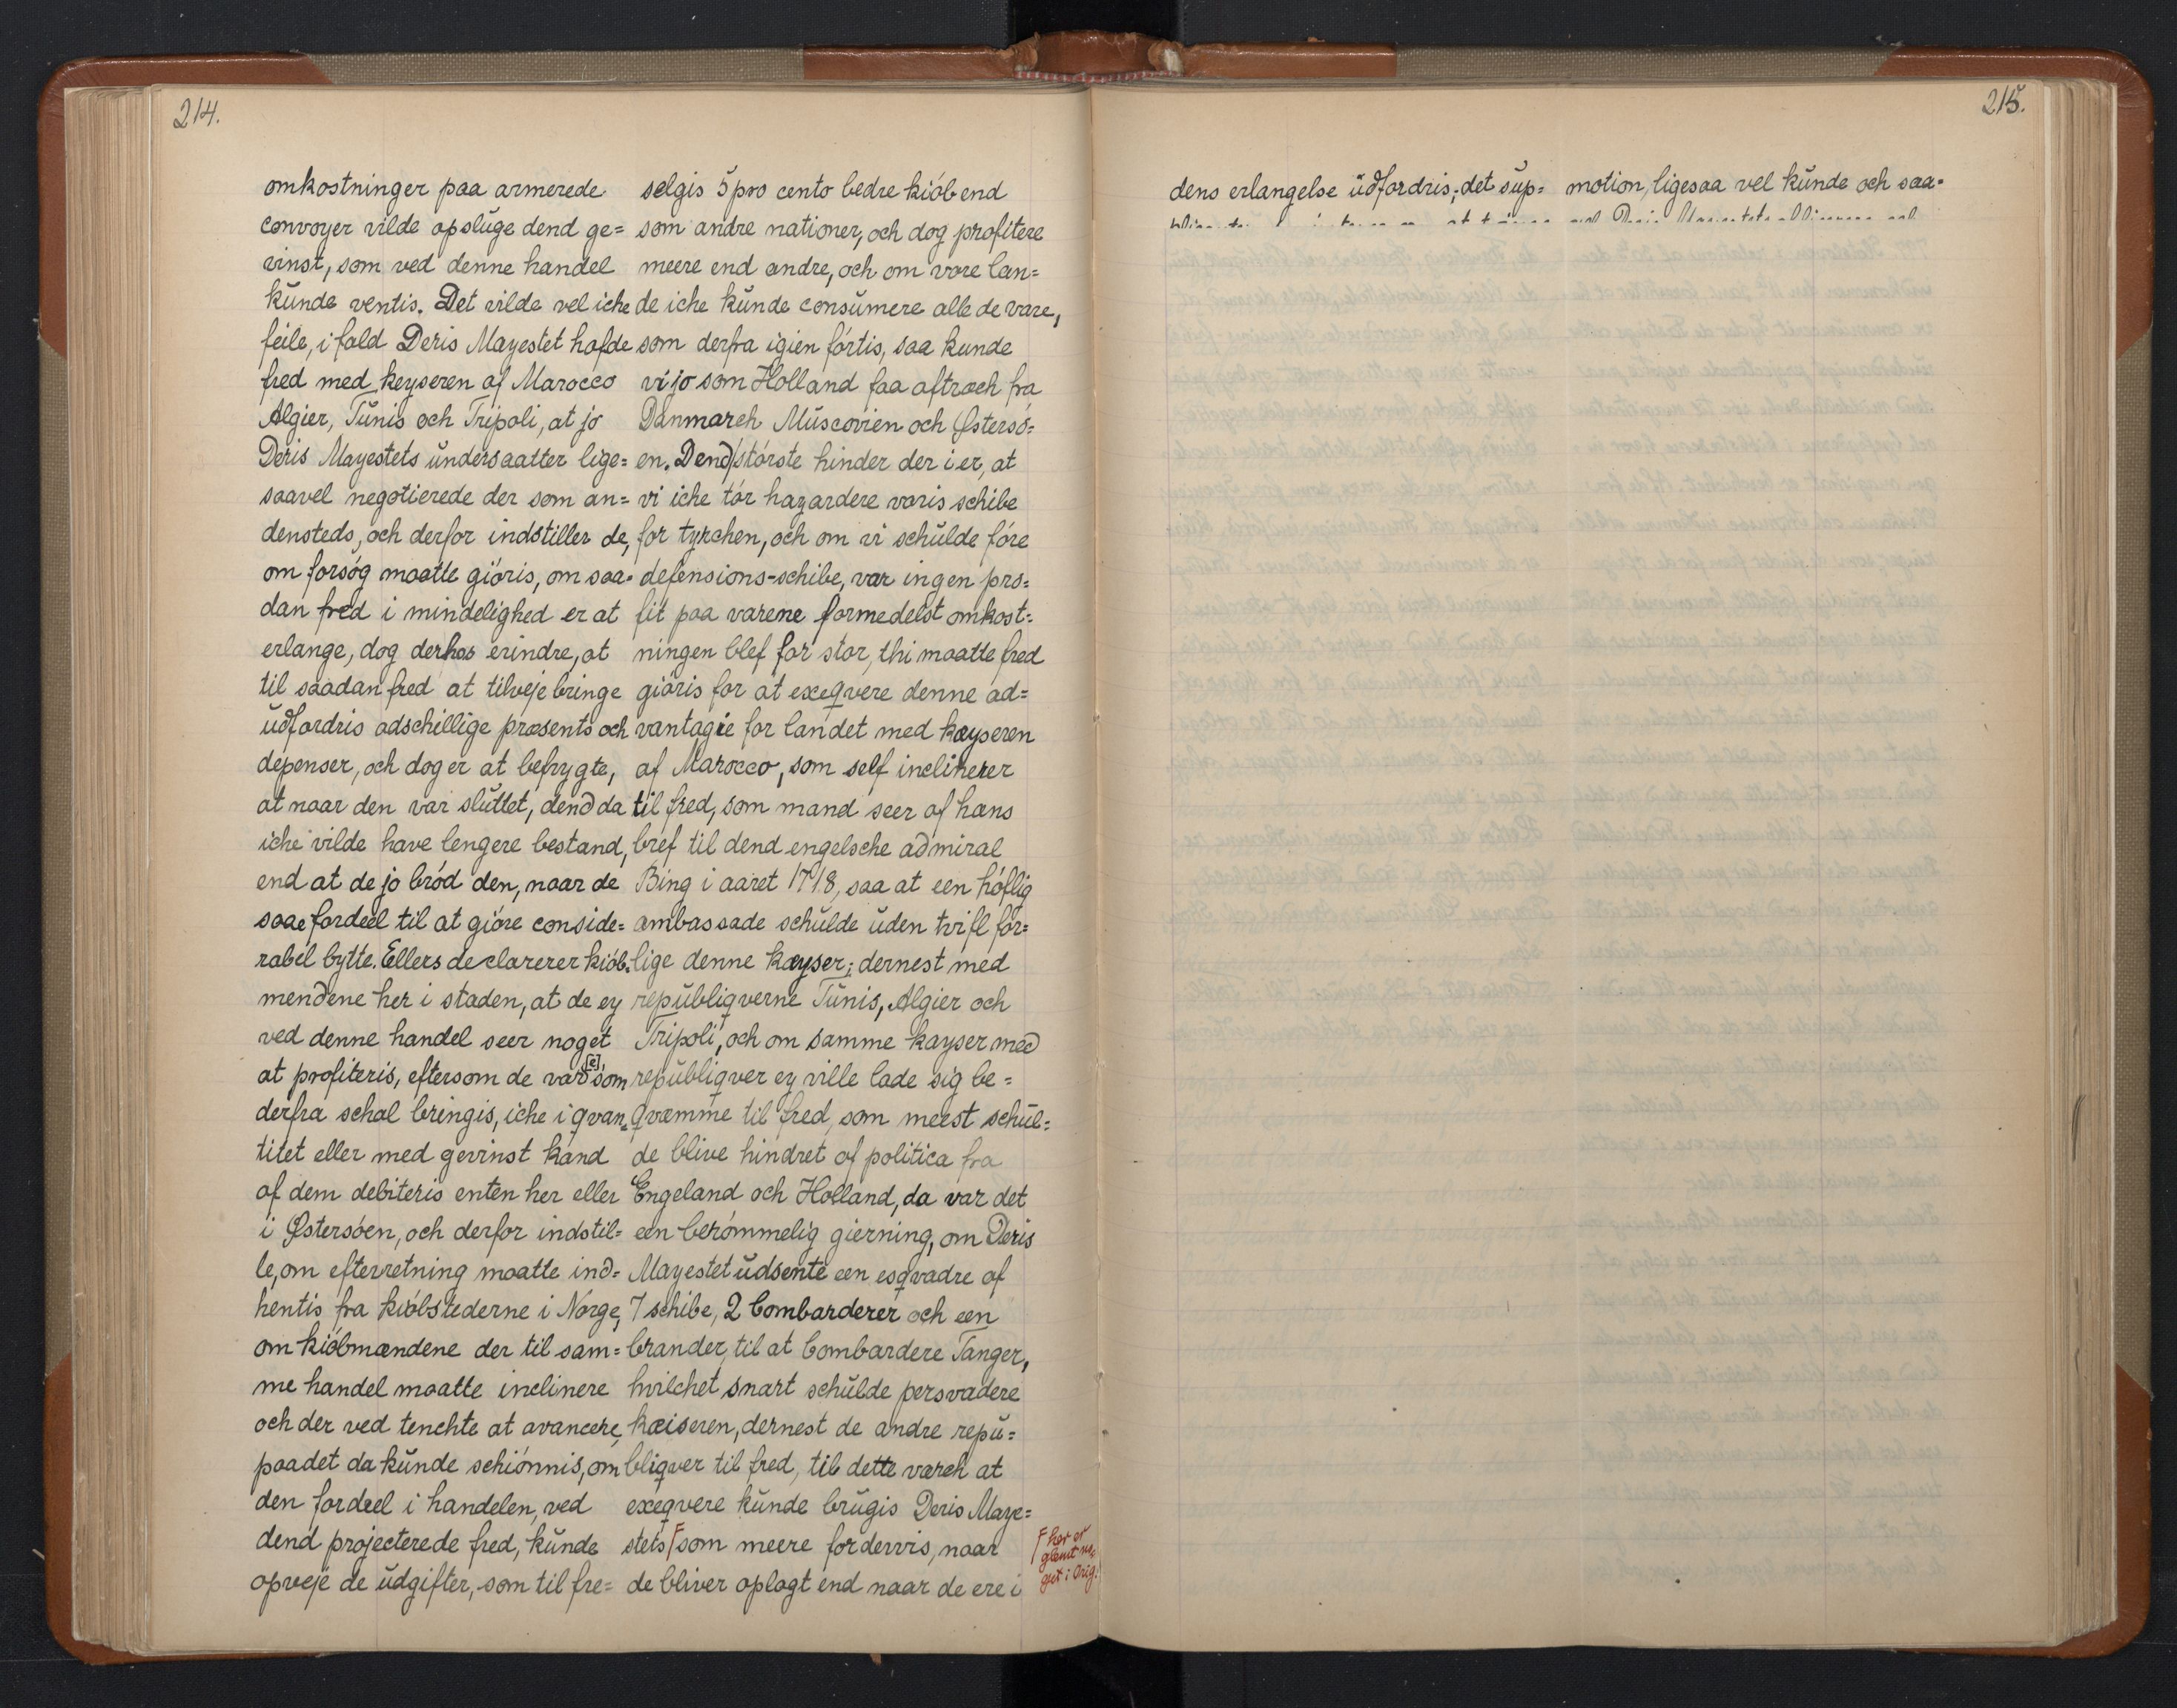 214.
omkostninger paa armerede
convoyer vilde opslüge dend ge=
vinst, som ved denne handel
künde ventis. Det vilde vel iche
feile, i fald Deris Mayestet hafde
fred med keyseren af Marocco
Algier, Tünis och Tripoli, at jo
Deris Mayestets ündersaatter lige=
saavel negotierede der som an=
densteds, och derfor indstiller de,
om forsög maatte giöris, om saa=
dan fred i mindelighed er at
erlange, dog derhos erindre, at
til saadan fred at tilvejebringe
üdfordris adschillige præsents och
depenser, och dog er at befrygte,
at naar den var slüttet, dend da
iche vilde have lengere bestand,
end at de jo bröd den, naar de
saae fordeel til at giöre conside=
rabel bytte. Ellers declarerer kiöb=
mendene her i staden, at de ey
ved denne handel seer noget
at profiteris, eftersom de var[e] som
derfra schal bringis, iche i qvan=
titet eller med gevinst kand
af dem debiteris enten her eller
i Østersöen, och derfor indstil=
le, om efterretning maatte ind=
hentis fra kiöbstederne i Norge,
om kiöbmændene der til sam=
me handel maatte inclinere
och der ved tenchte at avancere,
paadet da künde schiönnis, om
den fordeel i handelen, ved
dend projecterede fred, künde
opveje de üdgifter, som til fre=
selgis 5 pro cento bedre kiöb end
som andre nationer, och dog profitere
meere end andre, och om vore lan=
de iche künde consümere alle de vare,
som derfra igien förtis, saa kunde
vi jo som Holland faa aftræch fra
Danmarch Müscovien och Östersö=
en. Dend störste hinder der i er, at
vi iche tör hazardere voris schibe
for tyrchen, och om vi schülde före
defensions-schibe, var ingen pro=
fit paa varene formedelst omkost=
ningen blef for stor, thi maatte fred
giöris for at exeqvere denne ad=
vantagie for landet med kæyseren
af Marocco, som self inclinerer
til fred, som mand seer af hans
bref til dend engelsche admiral
Bing i aaret 1718, saa at een höflig
ambassade schülde üden tvifl for=
lige denne kæyser; dernest med
repübliqverne Tünis, Algier och
Tripoli, och om samme kayser med
repübliqver ey ville lade sig be=
qvæmme til fred, som meest schül=
de blive hindret af politica fra
Engeland och Holland, da var det
een berömmelig gierning, om Deris
Mayestet üdsente een esqvadre af
7 schibe, 2 bombarderer och een
brander, til at bombardere Tanger,
hvilchet snart schülde persvadere
kæiseren, dernest de andre repü=
bliqver til fred, til dette værch at
exeqvere künde brügis Deris Maye=
stets F som meere fordervis, naar
de bliver oplagt end naar de ere i
F her er
glemt no=
get i Orig!
215.
dens erlangelse üdfordris; det süp=
motion, ligesaa vel künde och saa=